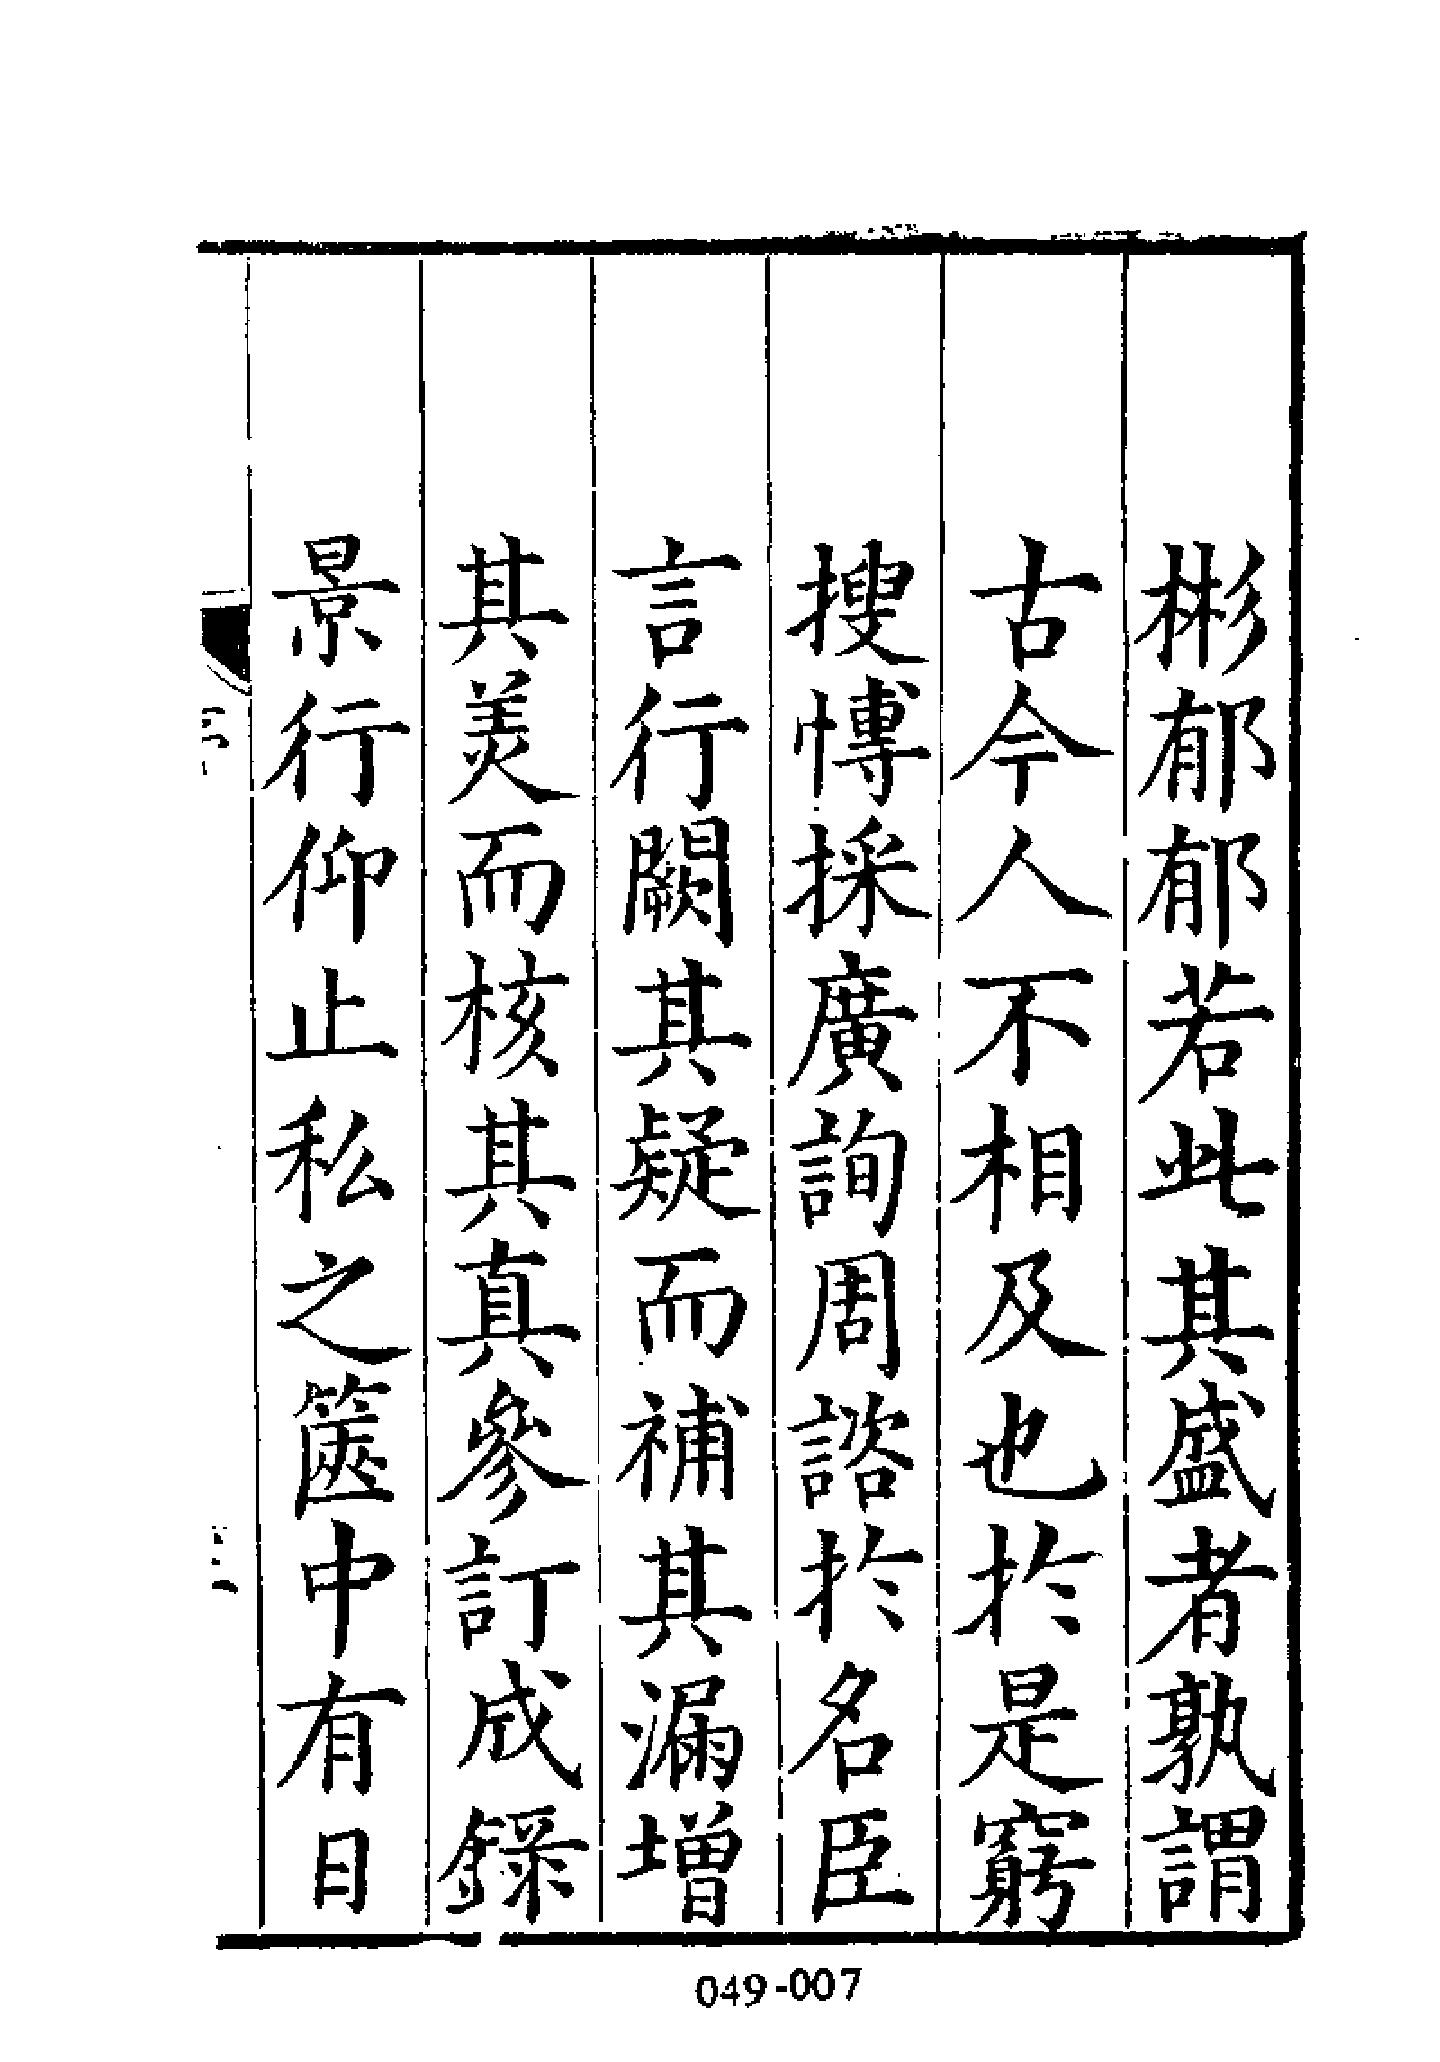 彬郁郁若此其盛者孰謂
古今人不相及也於是窮
搜博採廣詢周諮於名臣
言行闕其疑而補其漏增
其美而核其真參訂成錄
景行仰止私之篋中有日
049-007